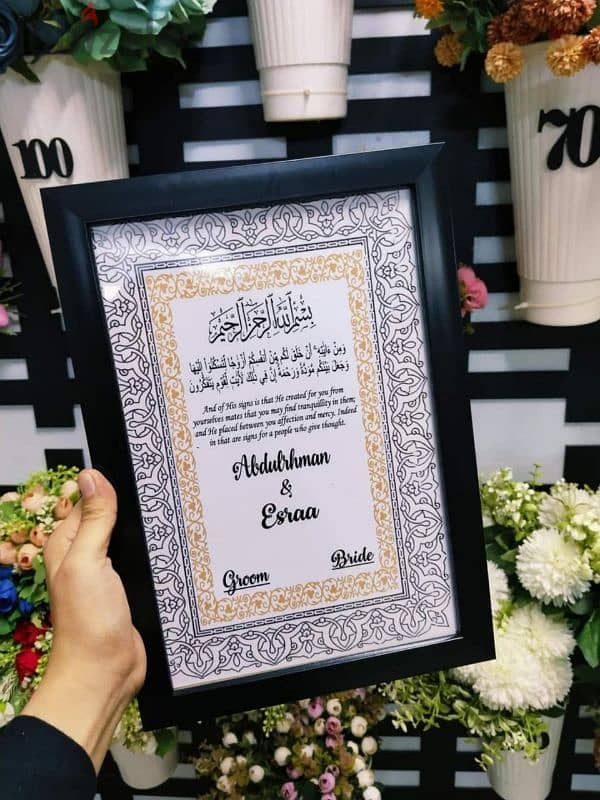 100
70
بِسْمِ ٱللَّهِ ٱلرَّحْمَٰنِ ٱلرَّحِيمِ
وَمِنْ ءَايَٰتِهِۦٓ أَنْ خَلَقَ لَكُم مِّنْ أَنفُسِكُمْ أَزْوَٰجًا لِّتَسْكُنُوٓا۟ إِلَيْهَا
وَجَعَلَ بَيْنَكُم مَّوَدَّةً وَرَحْمَةً إِنَّ فِى ذَٰلِكَ لَءَايَٰتٍ لِّقَوْمٍ يَتَفَكَّرُونَ
And of His signs is that He created for you from
yourselves mates that you may find tranquillity in them;
and He placed between you affection and mercy. Indeed
in that are signs for a people who give thought.
Abdulrhman
&
Esraa
Groom
Bride